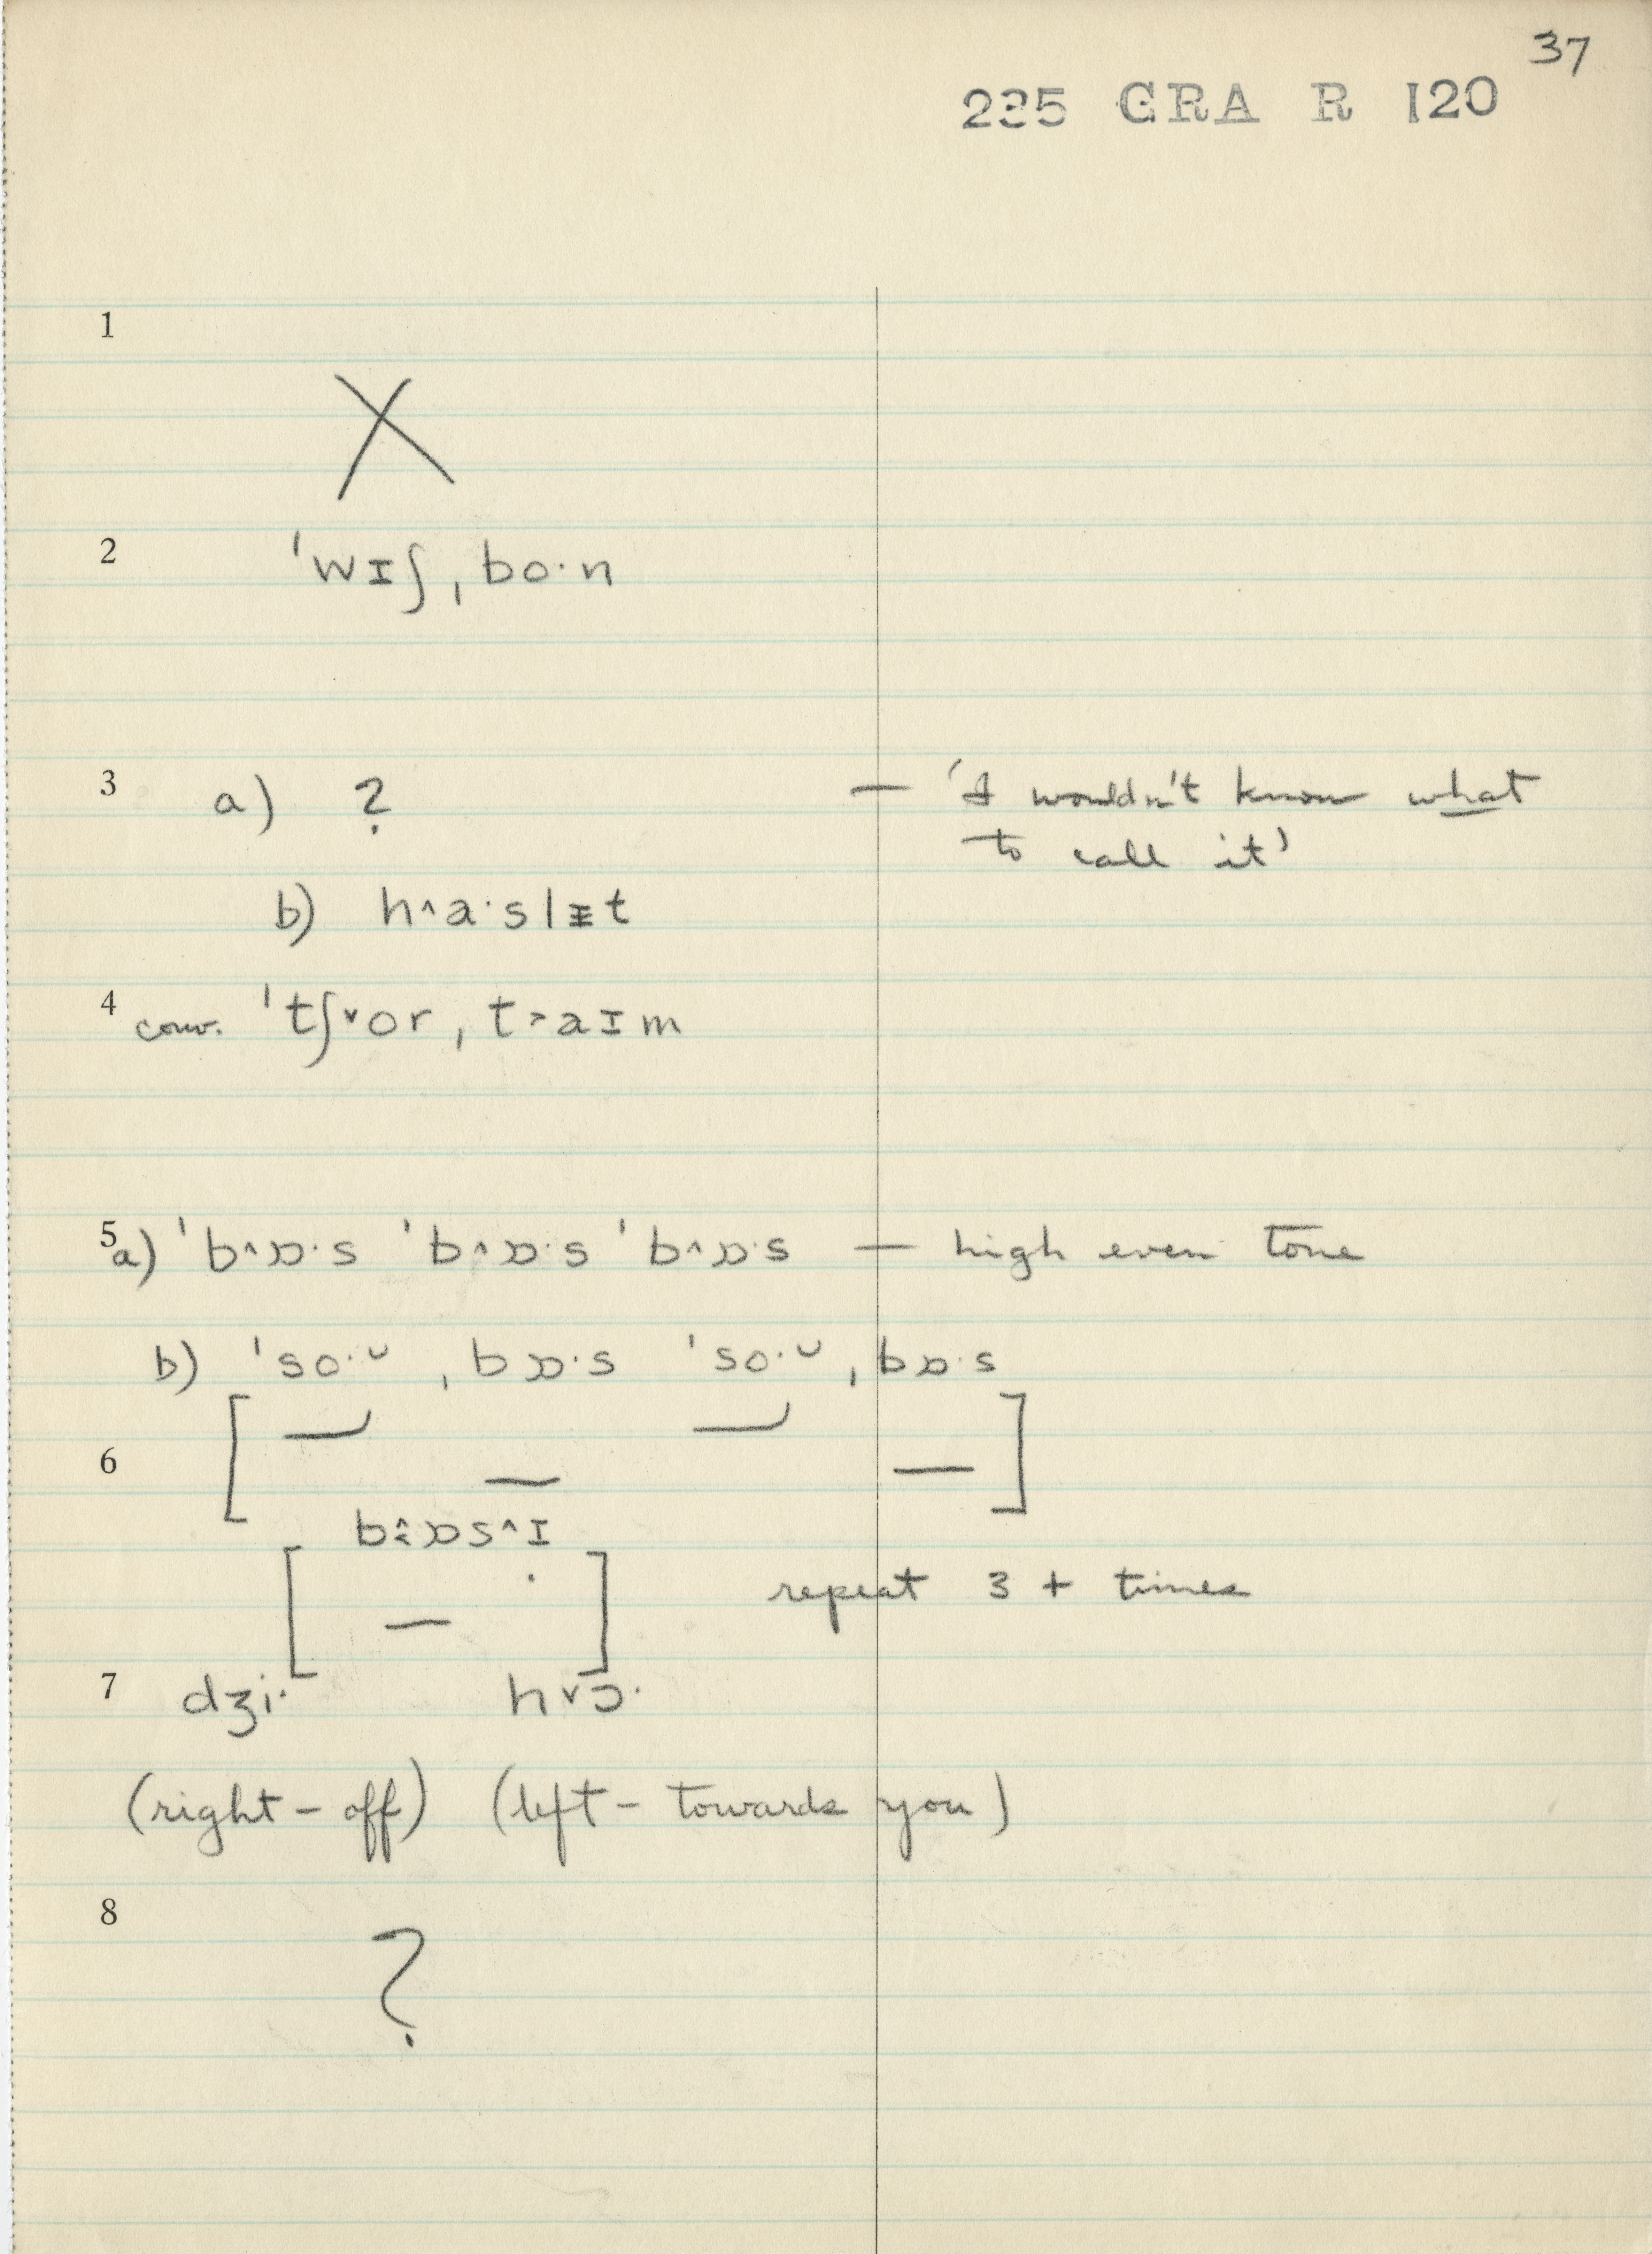 37
225 GRA R 120
1
X
2 ˈwɪʃˌbo·n
3 a) ? — 'I wouldn't know what
to call it'
b) h˄a·slɪ̵t
4 conv. ˈtʃ˅orˌt˃aɪm
5 a) ˈb˄ɒ·s ˈb˄ɒ·s ˈb˄ɒ·s — high even tone
b) ˈso·ᴗ ˌbɒ·s ˈso·ᴗ ˌbɒ·s
6
b˄ɒs˄ɪ
repeat 3 + times
7 dʒi· h˅ɔ·
(right – off) (left – towards you)
8
?